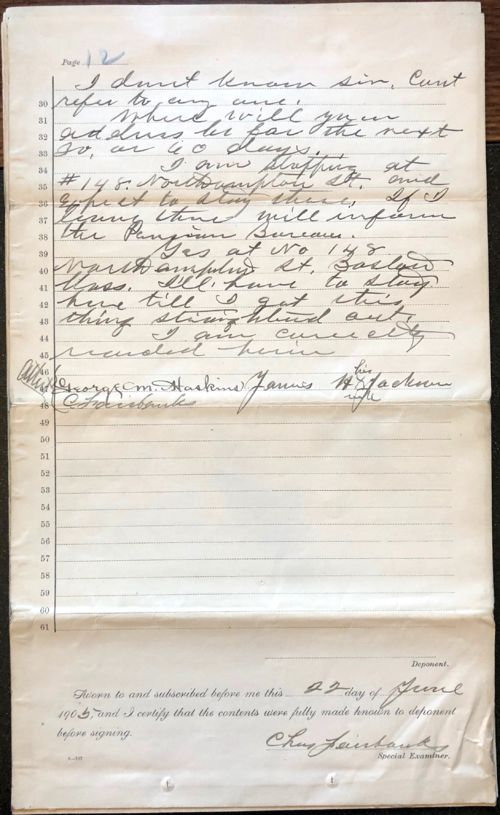 Page 12
I dont know sir. Cant
30 refer to any one.
31 Where will your
32 address be for the next
33 30, or 60 days.
34 I am stopping at
35 # 148 Northampton St. and
36 expect to stay there. If I
37 leave there will inform
38 the Pension Bureau.
39 Yes at No 148
40 Northampton St. Boston
41 Mass. I'll have to stay
42 here till I get this
43 thing straightened out.
44 I am correctly
45 recorded herein
46 his
47 George M. Haskins James H X Jackson
48 C Fairbanks mark
49
50
51
52
53
54
55
56
57
58
59
60
61
Deponent.
Sworn to and subscribed before me this 22 day of June
1905, and I certify that the contents were fully made known to deponent
before signing.
Chas Fairbanks
Special Examiner.